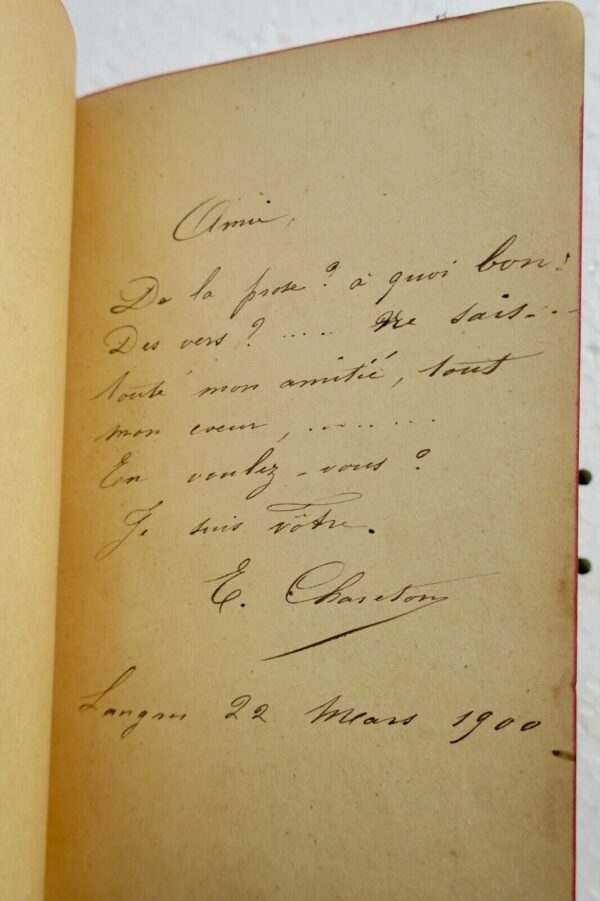 Amie,
De la prose? à quoi bon!
Des vers? .... ne sais...
toute mon amitié, tout
mon coeur, ........
En voulez-vous?
Je suis vôtre.
E. Chareton
Langres 22 Mars 1900